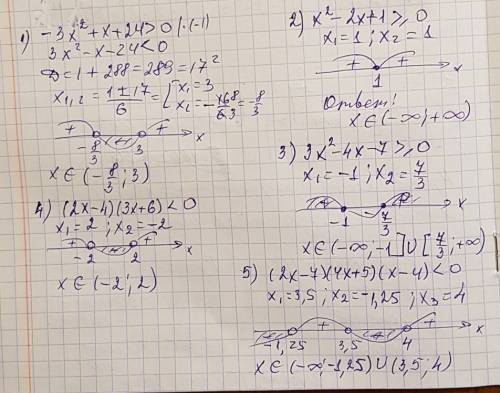 1) -3x² + x + 24 > 0 | · (-1)
3x² - x - 24 < 0
D = 1 + 288 = 289 = 17²
x₁,₂ = (1 ± 17)/6 = [x₁ = 3
x₂ = -16/6 = -8/3
+ - + x
-8/3 3
x ∈ (-8/3; 3)
2) x² - 2x + 1 ≥ 0
x₁ = 1; x₂ = 1
+ + x
1
Ответ:
x ∈ (-∞; +∞)
3) 3x² - 4x - 7 ≥ 0
x₁ = -1; x₂ = 7/3
x
-1 7/3
x ∈ (-∞; -1] ∪ [7/3; +∞)
4) (2x-4)(3x+6) < 0
x₁ = 2; x₂ = -2
+ - + x
-2 2
x ∈ (-2; 2)
5) (2x-7)(4x+5)(x-4) < 0
x₁ = 3,5; x₂ = -1,25; x₃ = 4
- + - + x
-1,25 3,5 4
x ∈ (-∞; -1,25) ∪ (3,5; 4)